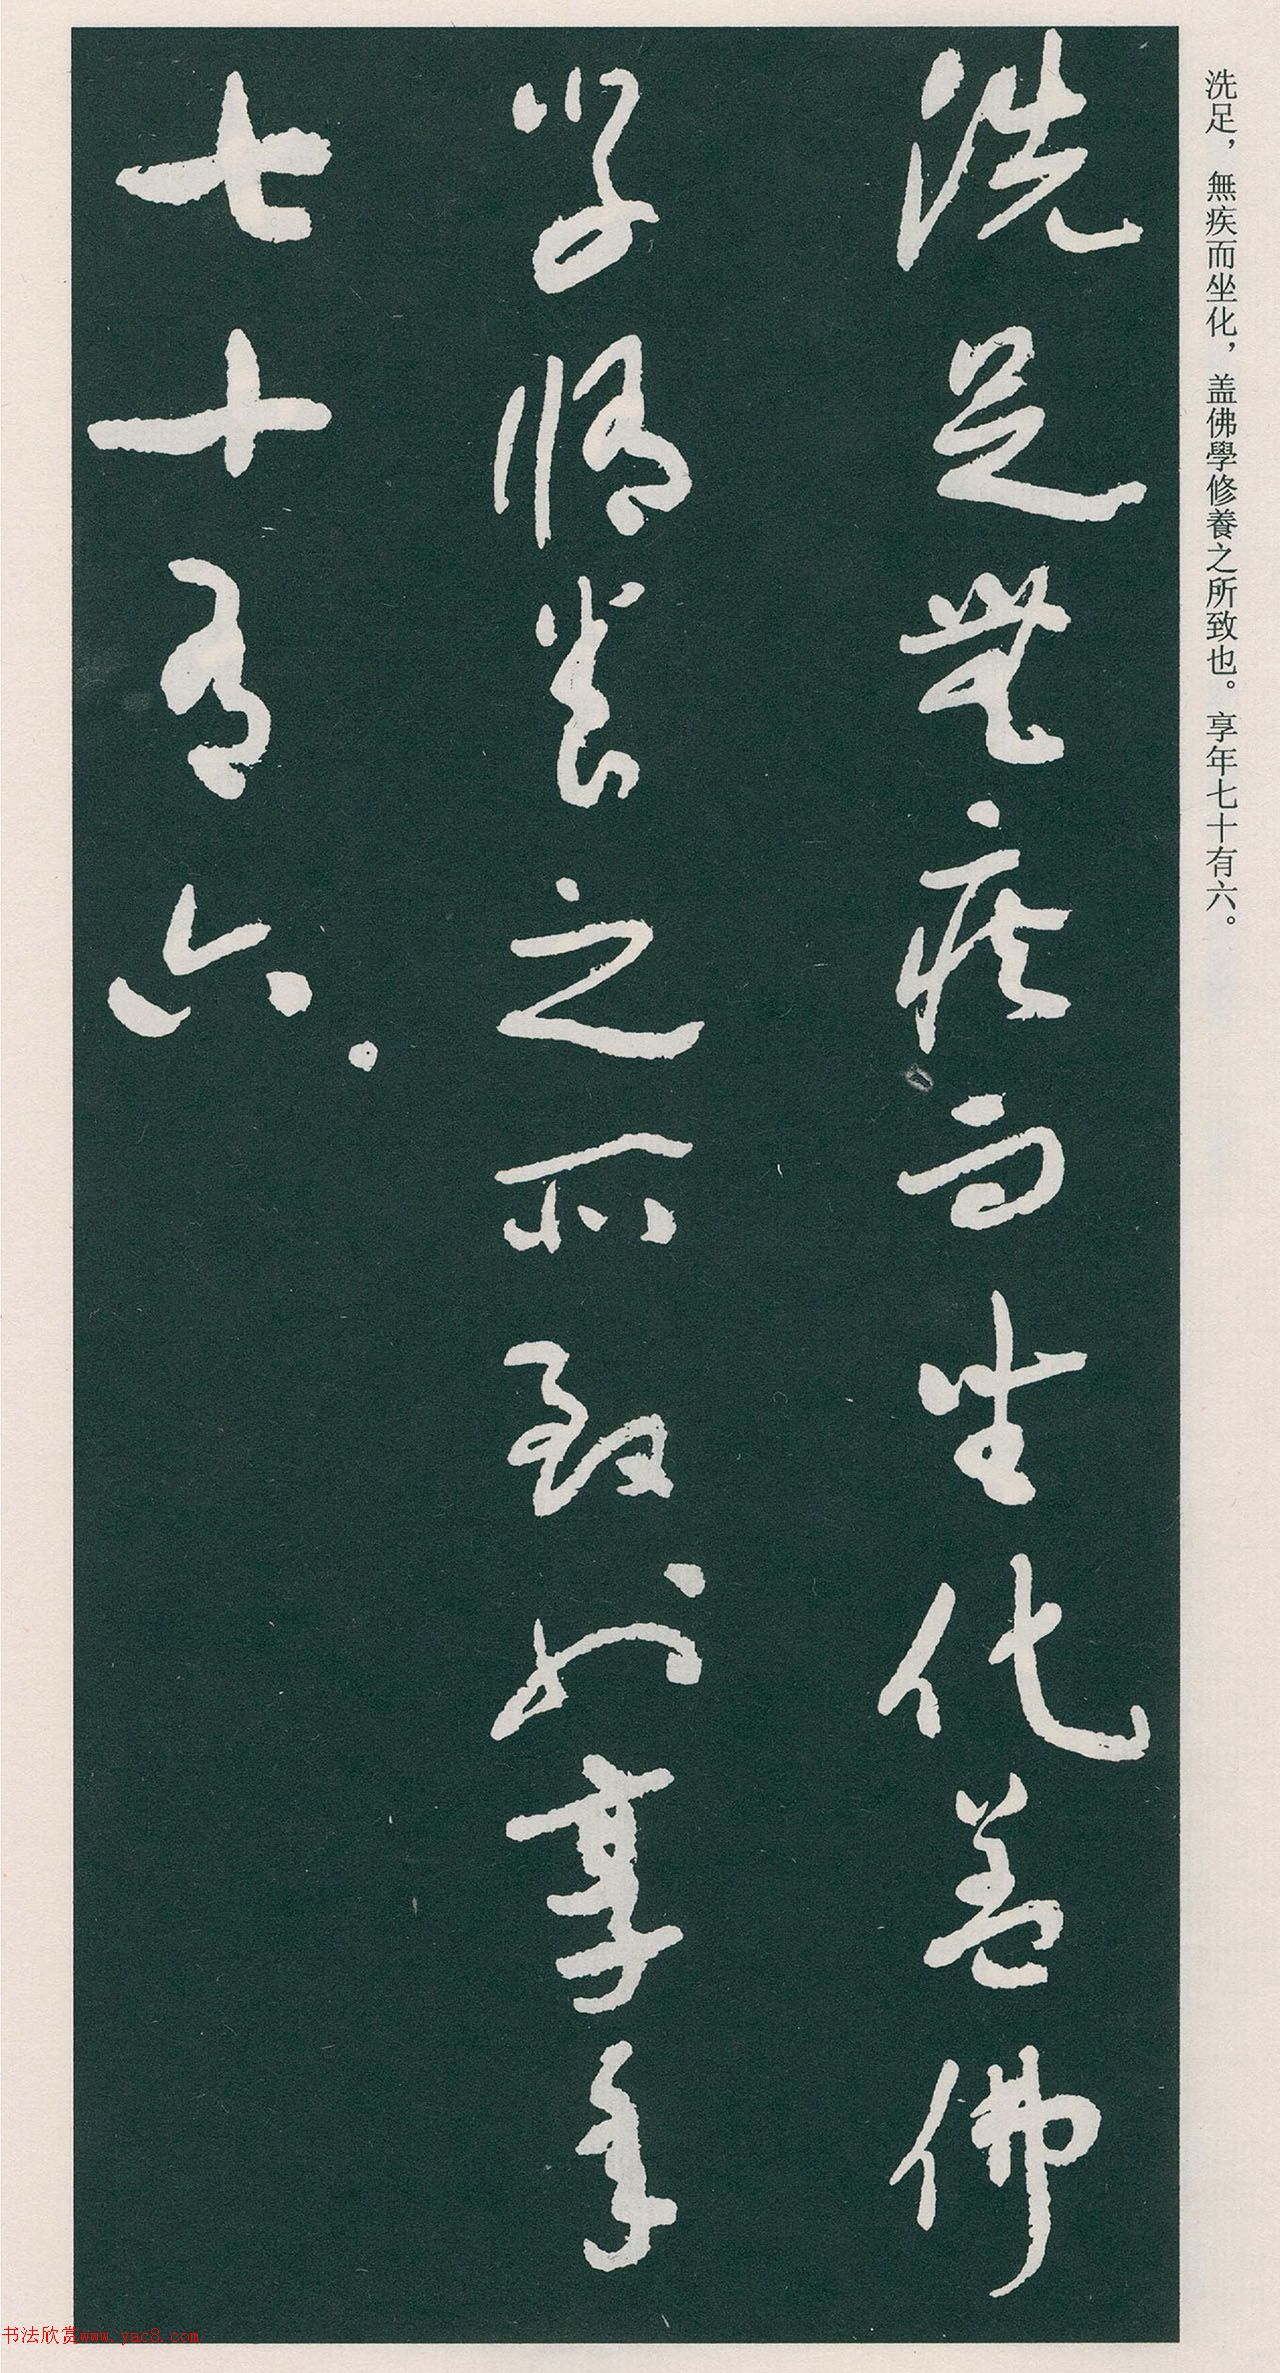 洗足，無疾而坐化，盖佛學修養之所致也。享年七十有六。
洗足無疾而坐化盖佛
學修養之所致也享年
七十有六。
书法欣赏www.yac8.com